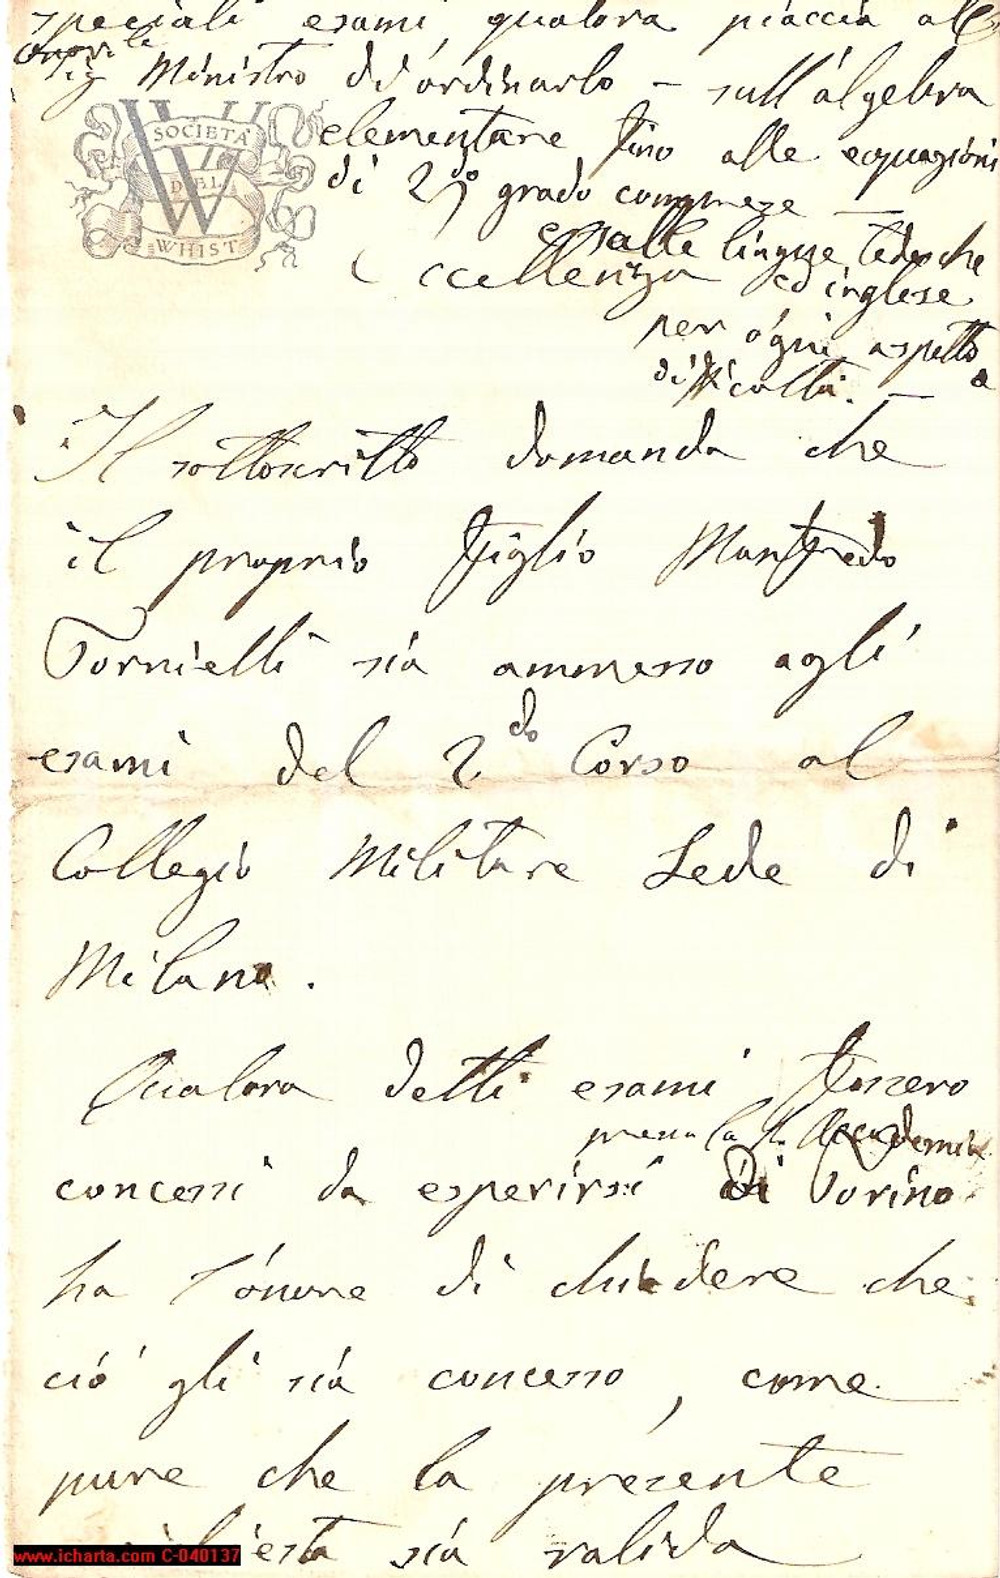 speciali esami, qualora piaccia all'
Onorevole
Sig Ministro di ordinarlo – sull'algebra
SOCIETÀ
DEL
WHIST
elementare fino alle equazioni
di 2do grado comprese —
e sulle lingue tedesche
Eccellenza
ed inglese
per ogni aspetto
a
difficoltà. —
Il sottoscritto domanda che
il proprio figlio Manfredo
Tornielli sia ammesso agli
esami del 2do Corso al
Collegio Militare Sede di
Milano.
Qualora detti esami fossero
presso la R. Accademia
concessi da esperirsi di Torino
ha l'onore di chiedere che
ciò gli sia concesso, come
pure che la presente
richiesta sia valida
www.icharta.com C-040137